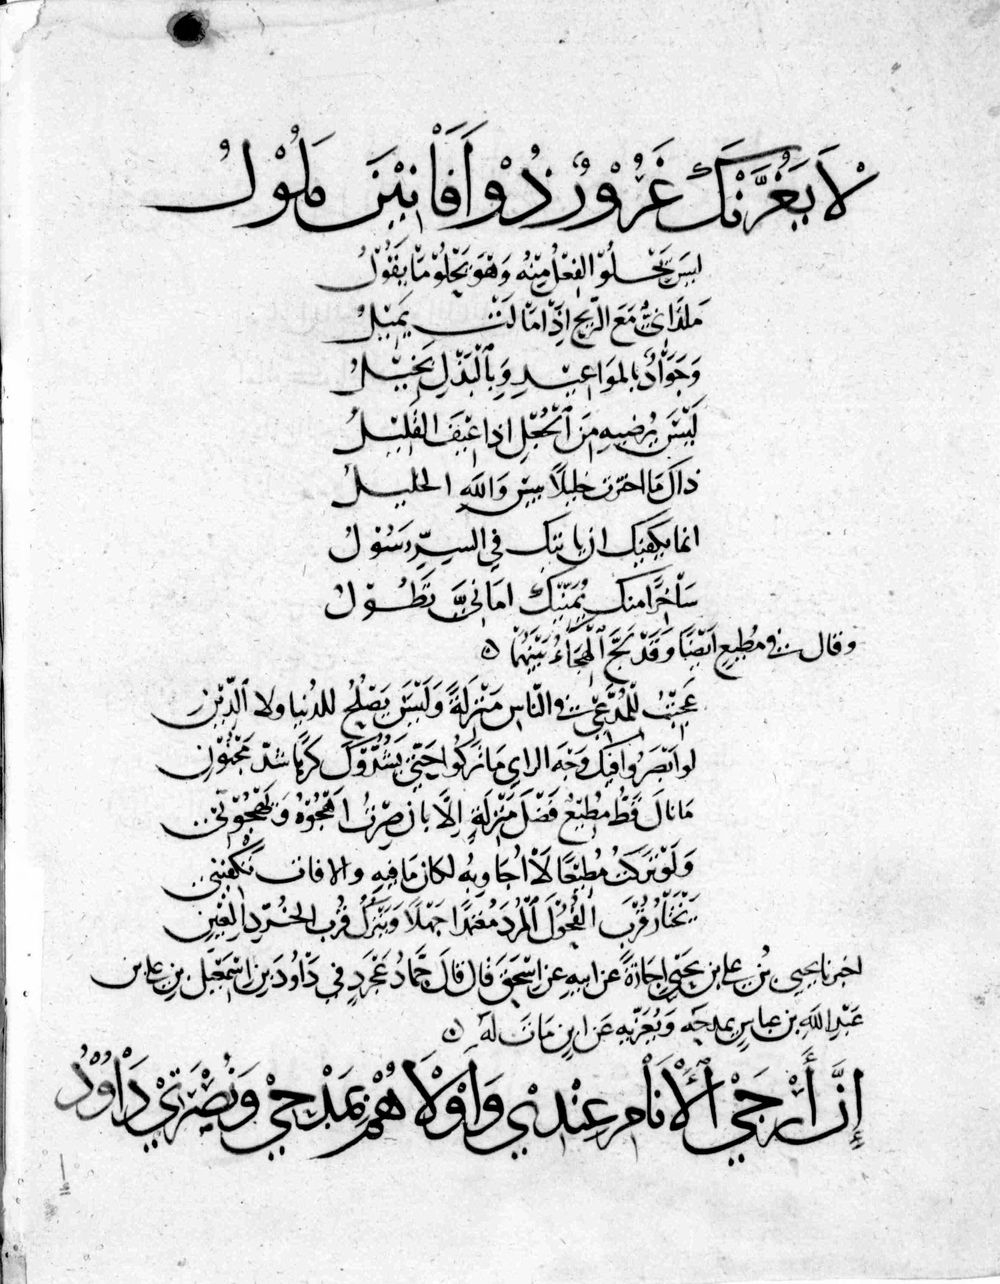 لَا يَغُرَّنْكَ غَرُوْرٌ ذُوْ أَفَانِيْنَ مَلُوْلُ
ليس يَحْلُوْ الفِعْلُ مِنْهُ وَهْوَ يَحْلُوْ مَا يَقُوْلُ
مَلَذَانِيٌّ مَعَ الرِّيحِ إِذَا مَالَتْ يَمِيْلُ
وَجَوَادٌ بِالمَوَاعِيْدِ وَبِالْبَذْلِ بَخِيْلُ
لَيْسَ يُرْضِيهِ مِنَ الْجُعْلِ اذا عِيْفَ القَلِيْلُ
ذاكَ مَا اخترت خليلاً بيس وَاللهِ الخليلُ
انما يكفيك ان ياتيك في السِّرِّ رَسُوْلُ
سَاخِرًا منك يُمَنِّيْكَ امَانِيَّ تَطُوْلُ
وقال في مُطِيعٍ ايْضًا وَقَدْ لَجَّ الْهِجَاءُ بَيْنَهُمَا
عَجِبْتُ لِلْمُدَّعِي في النّاسِ مَنْزِلَةً وَلَيْسَ يَصْلُحُ للدُنيا ولا الدِّيْنِ
لو ابْصَرُوا فيك وَجْهَ الراىِ مَا تركُوا حَتّى يَشُدُّوْكَ كَرْهًا شَدَّ مَجْنُوْنِ
مَا نَالَ قَطُّ مُطِيْعٌ فَضْلَ مَنْزِلَةٍ إِلَّا بِأن صِرْتُ اَهْجُوْهُ وَيَهْجُوْنِي
وَلَوْ تَرَكْتُ مُطِيْعًا لَا أُجَاوِبُه لكان مَا فيهِ والافات تكفيني
يَخْتَارُ قُرْبَ الفُحُوْلِ الْمُرْدِ مُعْتَمِدًا جَهْلًا وَيَتْرُكُ قُرْبَ الخُرَّدِ العِيْنِ
اخبرنا يحيى بْن على بن يحيى إجازةً عن ابيه عن اسحق قال قال حمّادُ عَجْرَدٍ في دَاوُد بن اسْمعيل بن على بن
عَبْدِ اللهِ بن عباس يمدحُه وَيُعَزّيه عن ابن مات له
إِنَّ أَرْجَى الْأَنَامِ عِنْدِيْ وَأَوْلَاهُمْ بِمَدْحِيْ وَنُصْرَتِيْ دَاوُدُ